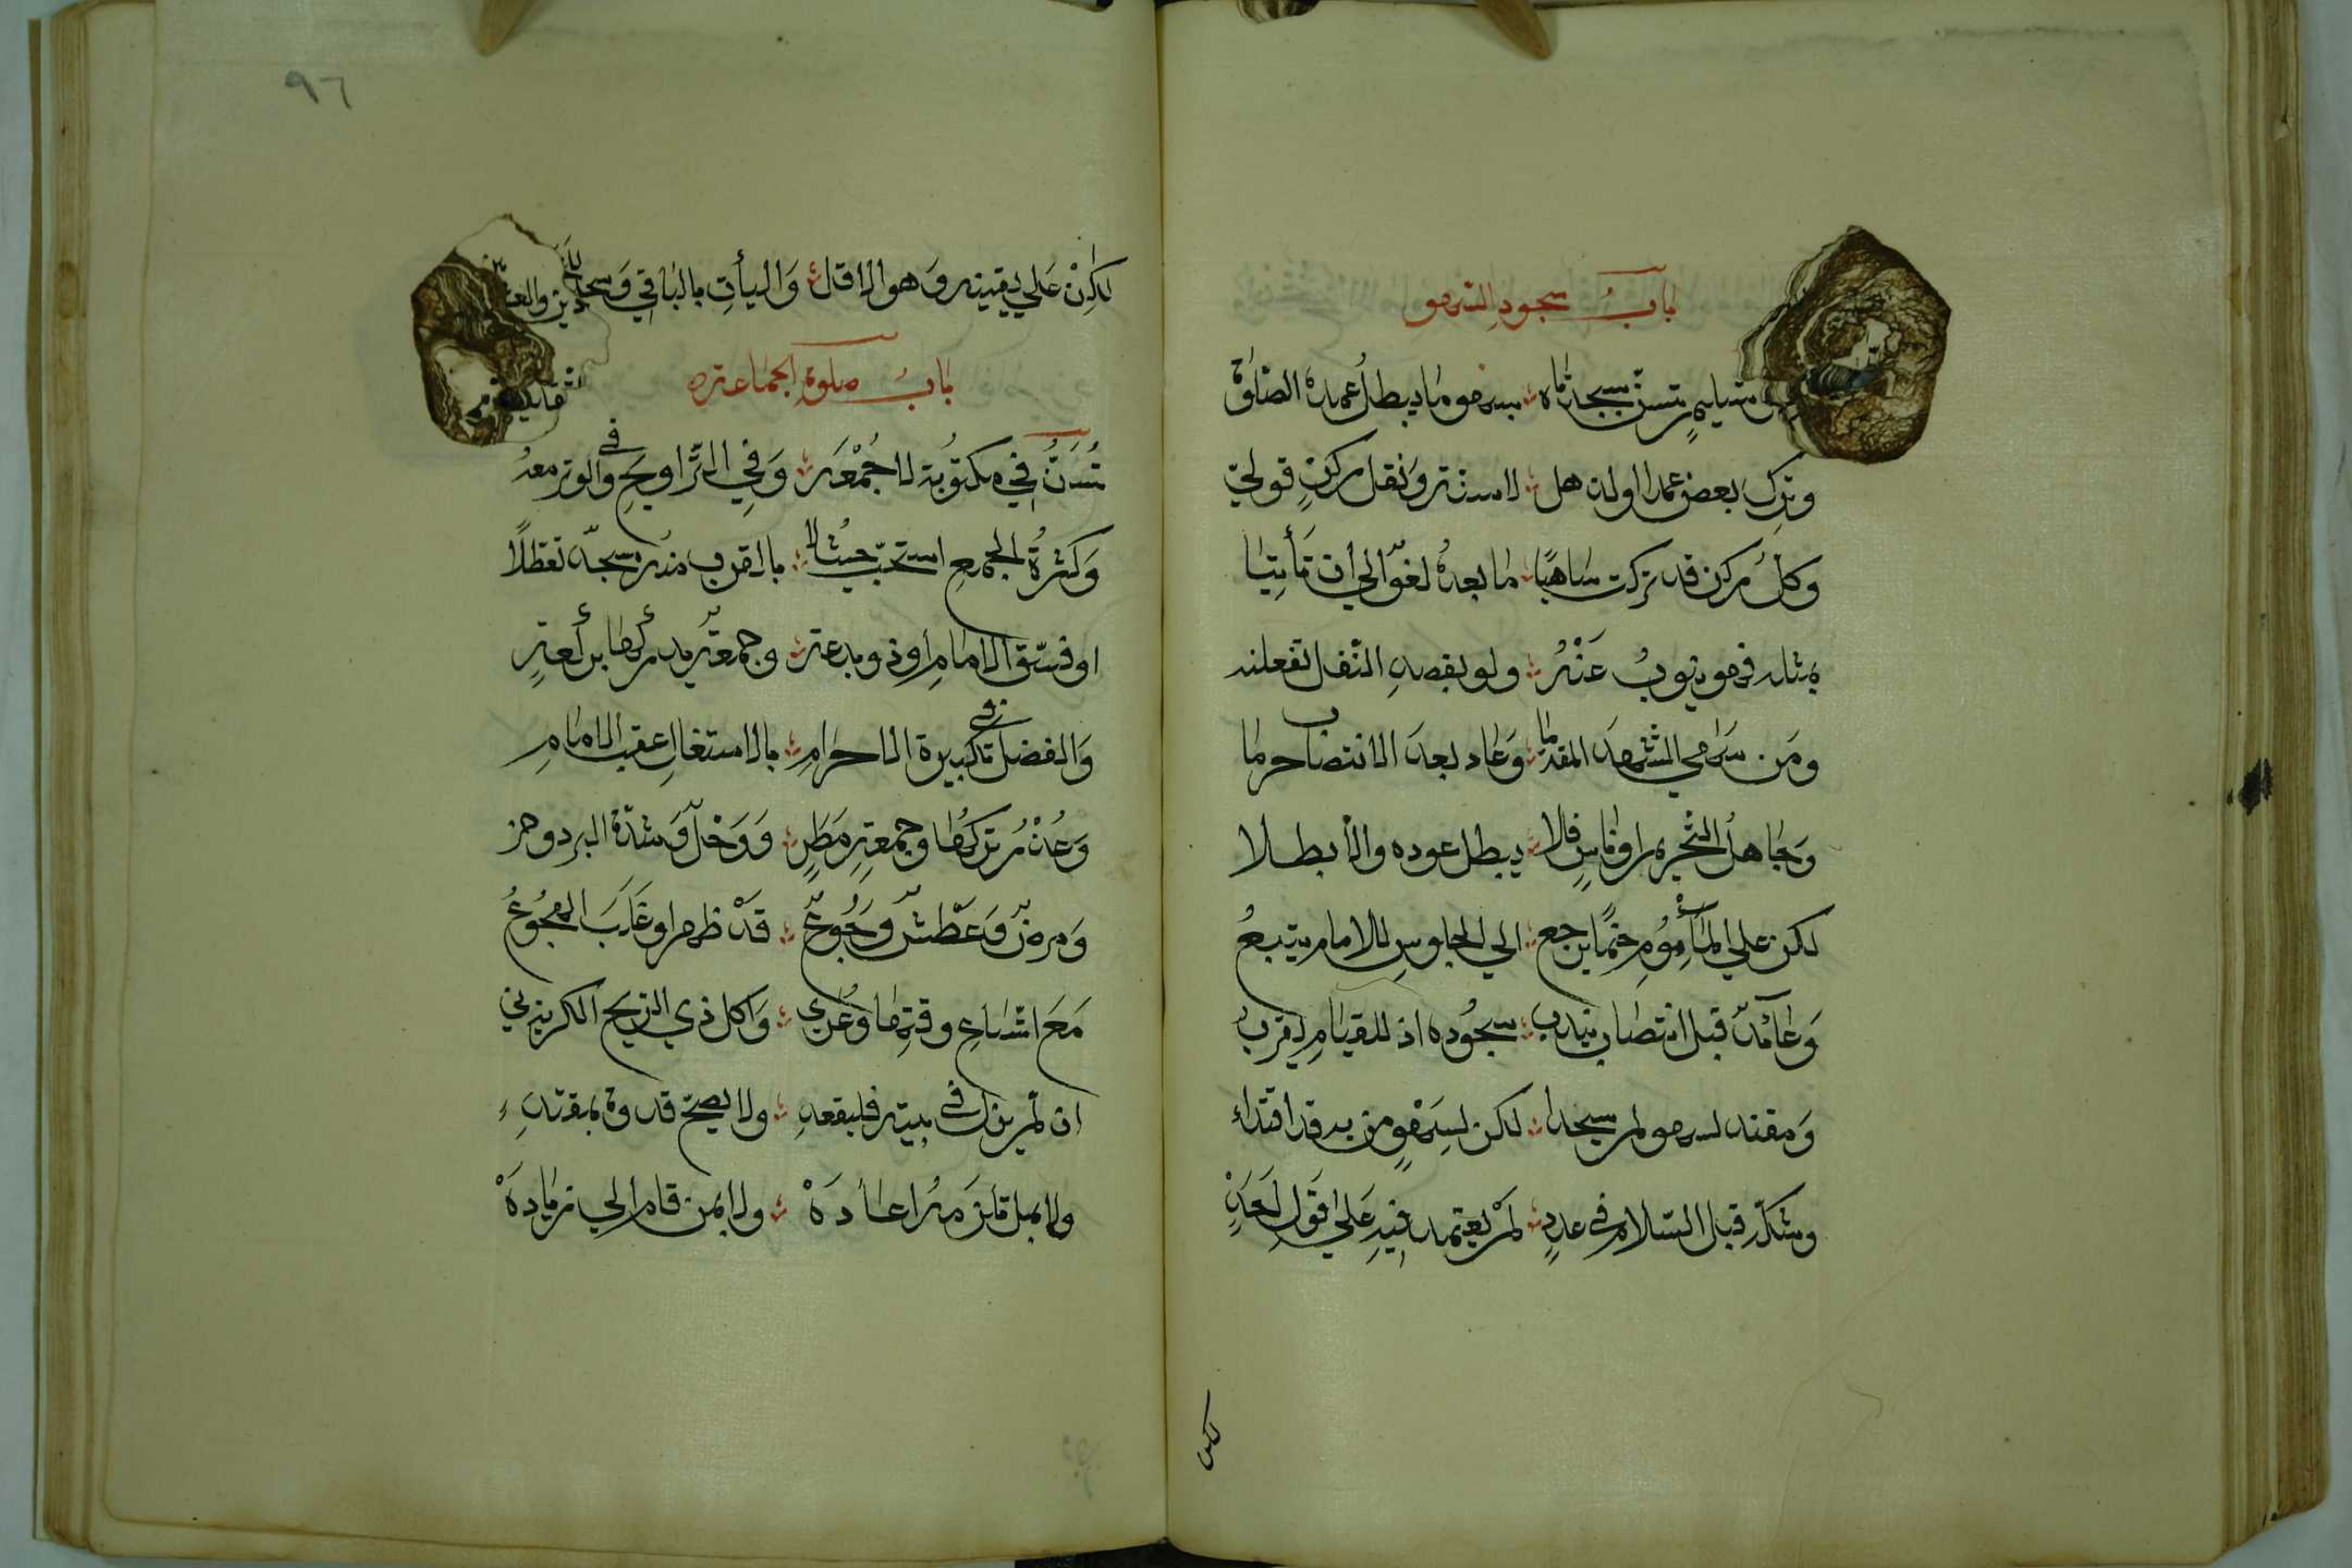 باب سجود السهو
تسليم تسن سجدتاه بسهو ما يبطل عمده الصلوة
وترك بعض عمدا اولن هل لا سنة ونقل ركن قولي
وكل ركن قد تركت ساهيا ما بعده لغو الي ان تأتيا
بمثله فهو ينوب عنه ولو بقصد النفل تفعلنه
ومن سها في التشهد المقدما وعاد بعد الانتصاب حرما
وجاهل التحريم او ناس فلا يبطل عوده والا بطلا
لكن علي المأموم حتما يرجع الي الجلوس للامام يتبع
وعائد قبل انتصاب يندب سجوده اذ للقيام يقرب
ومقتد لسهو لم يسجدا لكن لسهو من به قد اقتداء
وشك قبل السلام في عدد لم يعتمد فيه علي قول احد
لكن
٩٦
لكن علي يقينه وهو الاقل وليأت بالباقي ويسجد
باب صلوة الجماعة
تسن في مكتوبة لا جمعه وفي التراويح وفي الوتر معه
وكثرة الجمع استحبت حيث لا بالقرب منه مسجد تعطلا
او فسق الامام او ذو بدعة وجمعة يدركها بركعة
والفضل في تكبيرة الاحرام بالاشتغال عقب الامام
وعذر تركها وجمعة مطر ووحل وشدة البرد وحر
ومرض وعطش وجوع قد ظهر او غلب الهجوع
مع اتساع وقتها وعري واكل ذي الريح الكريه ني
ان لم يزل في بيته فليقعد ولا يصح قدوة بمقتد
ولا بمن تلزمه اعاده ولا بمن قام الي زياده